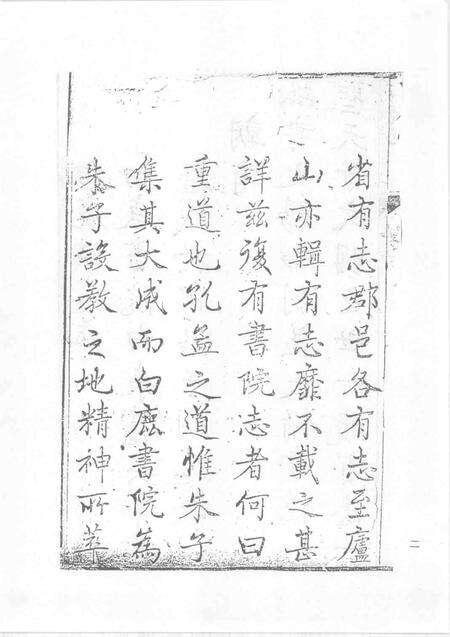 省有志郡邑各有志至廬
山亦輯有志靡不載之甚
詳茲復有書院志者何曰
重道也孔孟之道惟朱子
集其大成而白鹿書院為
朱子設教之地精神所萃
二